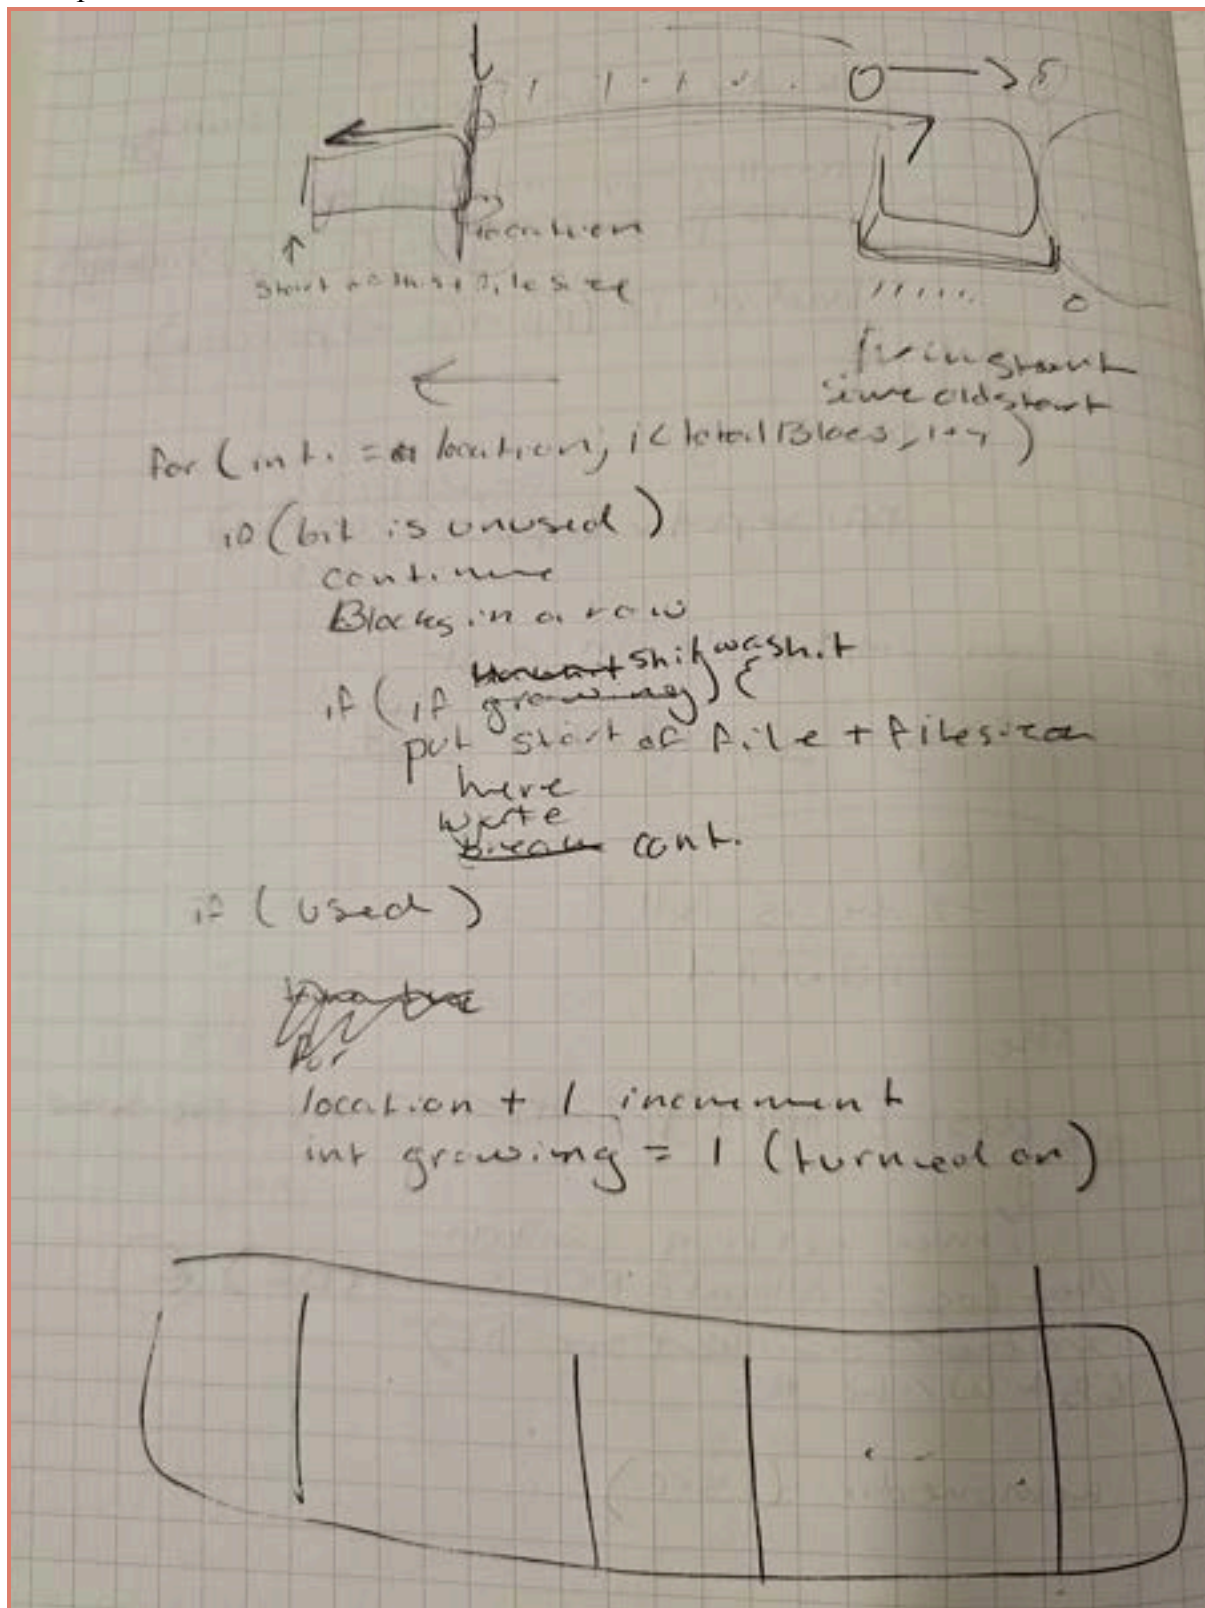 0 → 5
location
start
file size
start
since old start
for (int i = location; i < total Blocs, i++)
if (bit is unused)
continue
Blocks in a row
was hit
if (if growing) {
put start of file + filesize
here
write
break cont.
if (used)
for
location + 1 increment
int growing = 1 (turned on)